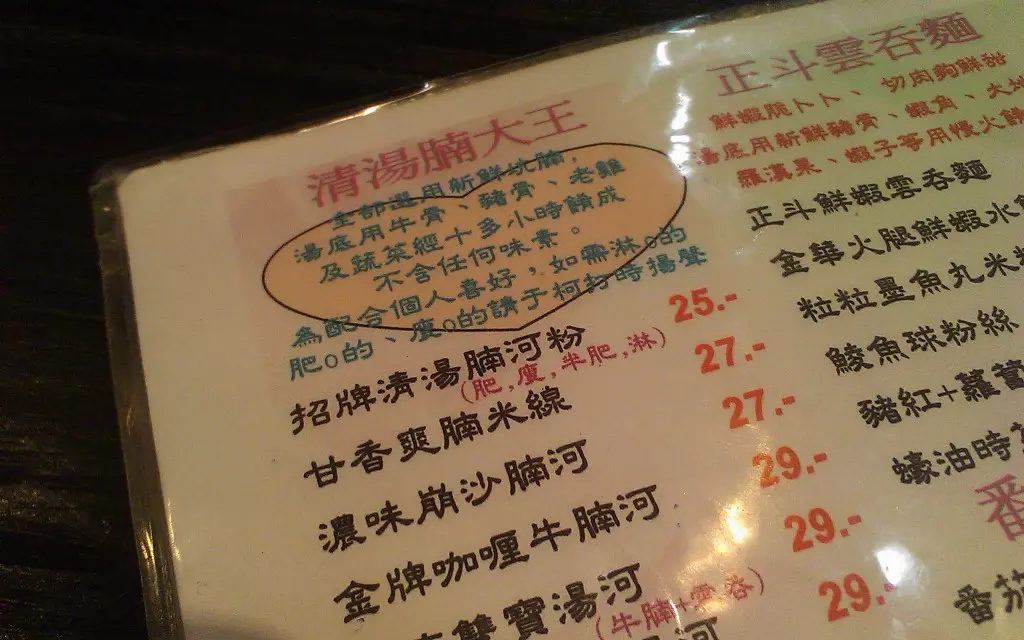 清湯腩大王
全部選用新鮮坑腩，
湯底用牛骨、豬骨、老雞
及蔬菜經十多小時餚成
不含任何味素。
為配合個人喜好，如需淋o的
肥o的、廋o的請于柯打時揚聲
招牌清湯腩河粉 25.-
(肥,廋,半肥,淋)
甘香爽腩米線 27.-
濃味崩沙腩河 27.-
金牌咖喱牛腩河 29.-
雙寶湯河 29.-
(牛腩+雲吞)
29.-
正斗雲吞麵
鮮蝦脆卜卜、切肉夠鮮
湯底用新鮮豬骨、蝦角、大地
羅漢果、蝦子等用慢火
正斗鮮蝦雲吞麵
金華火腿鮮蝦水
粒粒墨魚丸米
鯪魚球粉絲
豬紅+蘿蔔
蠔油時
番
番茄